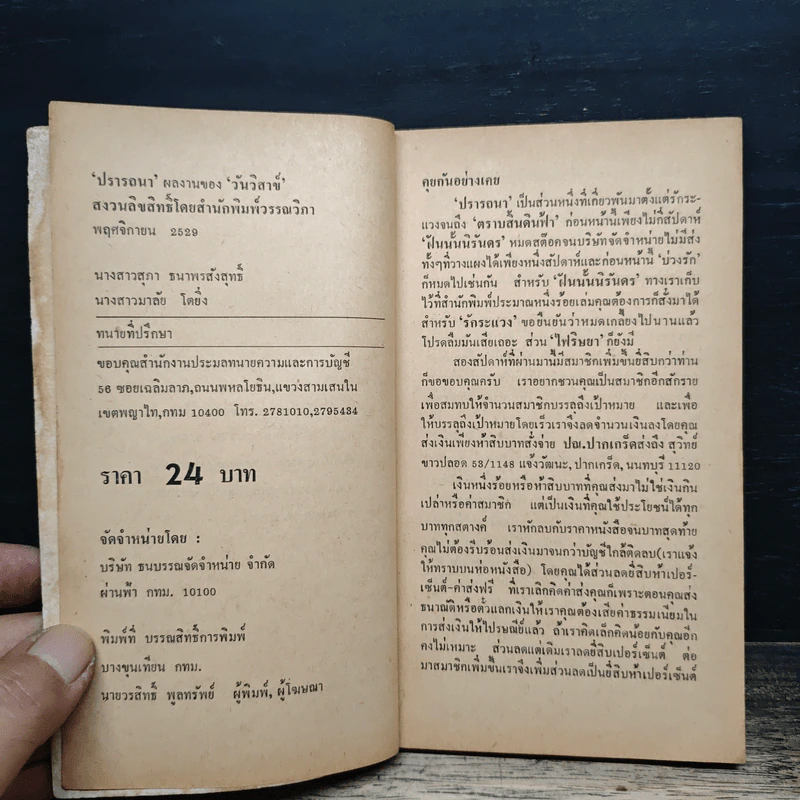 'ปรารถนา' ผลงานของ 'วันวิสาข์'
สงวนลิขสิทธิ์โดยสำนักพิมพ์วรรณวิภา
พฤศจิกายน 2529
นางสาวสุภา ธนาพรสังสุทธิ์
นางสาวมาลัย โตยิ่ง
ทนายที่ปรึกษา
ขอบคุณสำนักงานประมลทนายความและการบัญชี
56 ซอยเฉลิมลาภ,ถนนพหลโยธิน,แขวงสามเสนใน
เขตพญาไท,กทม 10400 โทร. 2781010,2795434
ราคา 24 บาท
จัดจำหน่ายโดย :
บริษัท ธนบรรณจัดจำหน่าย จำกัด
ผ่านฟ้า กทม. 10100
พิมพ์ที่ บรรณสิทธิ์การพิมพ์
บางขุนเทียน กทม.
นายวรสิทธิ์ พูลทรัพย์ ผู้พิมพ์, ผู้โฆษณา
คุยกันอย่างเคย
'ปรารถนา' เป็นส่วนหนึ่งที่เกี่ยวพันมาตั้งแต่รักระ-
แวงจนถึง 'ตราบสิ้นดินฟ้า' ก่อนหน้านี้เพียงไม่กี่สัปดาห์
'ฝันนั้นนิรันดร' หมดสต๊อคจนบริษัทจัดจำหน่ายไม่มีส่ง
ทั้งๆที่วางแผงได้เพียงหนึ่งสัปดาห์และก่อนหน้านี้ 'บ่วงรัก'
ก็หมดไปเช่นกัน สำหรับ 'ฝันนั้นนิรันดร' ทางเราเก็บ
ไว้ที่สำนักพิมพ์ประมาณหนึ่งร้อยเล่มคุณต้องการก็สั่งมาได้
สำหรับ 'รักระแวง' ขอยืนยันว่าหมดเกลี้ยงไปนานแล้ว
โปรดลืมมันเสียเถอะ ส่วน 'ไฟริษยา' ก็ยังมี
สองสัปดาห์ที่ผ่านมานี้มีสมาชิกเพิ่มขึ้นยี่สิบกว่าท่าน
ก็ขอขอบคุณครับ เราอยากชวนคุณเป็นสมาชิกอีกสักราย
เพื่อสมทบให้จำนวนสมาชิกบรรลุถึงเป้าหมาย และเพื่อ
ให้บรรลุถึงเป้าหมายโดยเร็วเราจึงลดจำนวนเงินลงโดยคุณ
ส่งเงินเพียงห้าสิบบาทสั่งจ่าย ปณ.ปากเกร็ดส่งถึง สุวิทย์
ขาวปลอด 53/1148 แจ้งวัฒนะ, ปากเกร็ด, นนทบุรี 11120
เงินหนึ่งร้อยหรือห้าสิบบาทที่คุณส่งมาไม่ใช่เงินกิน
เปล่าหรือค่าสมาชิก แต่เป็นเงินที่คุณใช้ประโยชน์ได้ทุก
บาททุกสตางค์ เราหักลบกับราคาหนังสือจนบาทสุดท้าย
คุณไม่ต้องรีบร้อนส่งเงินมาจนกว่าบัญชีใกล้ติดลบ(เราแจ้ง
ให้ทราบบนห่อหนังสือ) โดยคุณได้ส่วนลดยี่สิบห้าเปอร์-
เซ็นต์-ค่าส่งฟรี ที่เราเลิกคิดค่าส่งคุณก็เพราะตอนคุณส่ง
ธนาณัติหรือตั๋วแลกเงินให้เราคุณต้องเสียค่าธรรมเนียมใน
การส่งเงินให้ไปรษณีย์แล้ว ถ้าเราคิดเล็กคิดน้อยกับคุณอีก
คงไม่เหมาะ ส่วนลดแต่เดิมเราลดยี่สิบเปอร์เซ็นต์ ต่อ
มาสมาชิกเพิ่มขึ้นเราจึงเพิ่มส่วนลดเป็นยี่สิบห้าเปอร์เซ็นต์